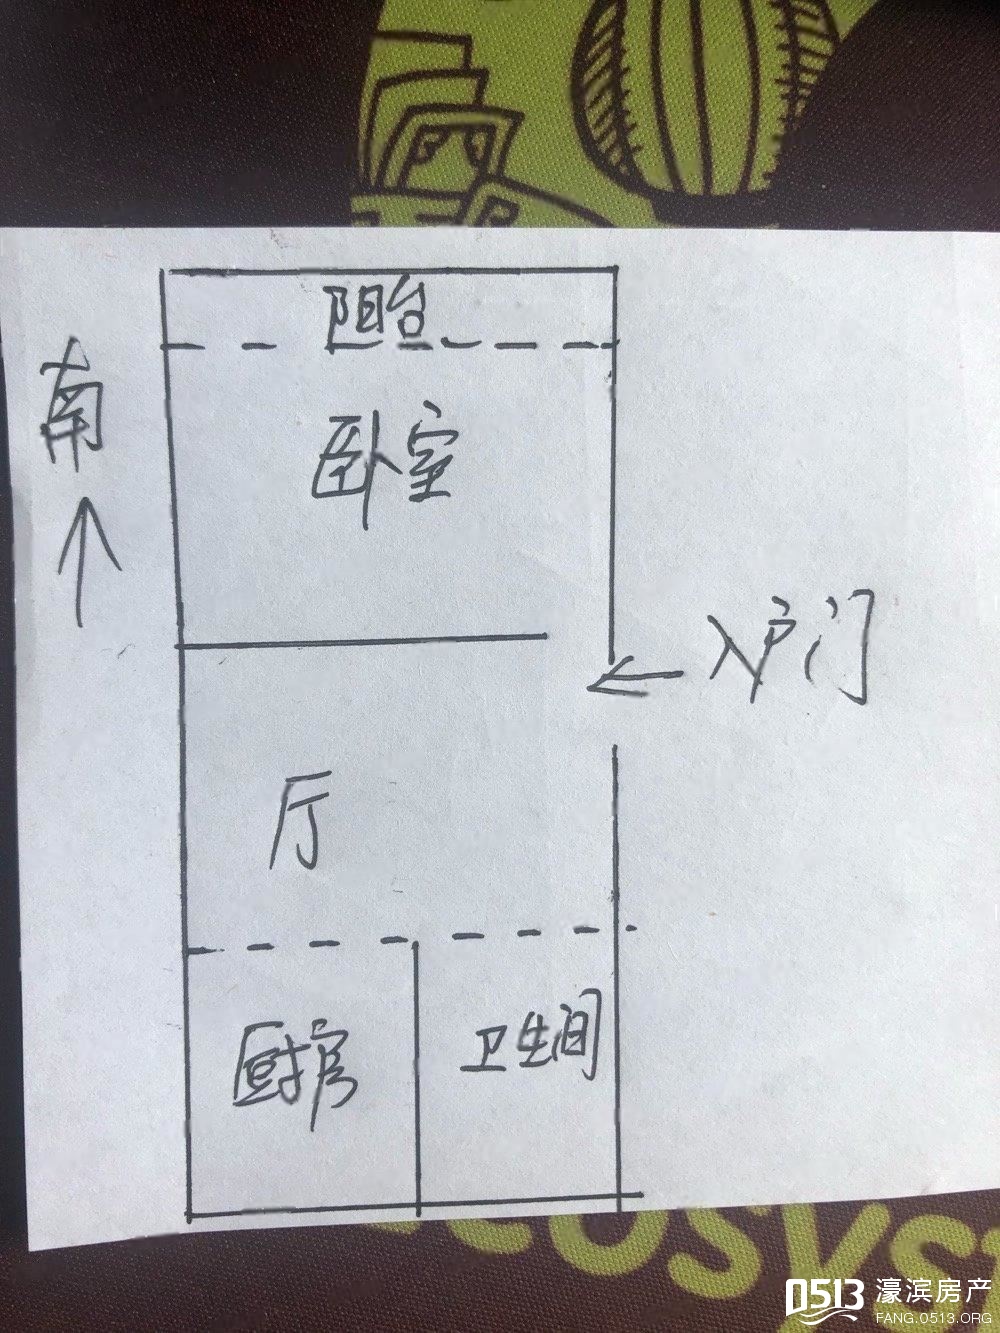 阳台
南
卧室
入户门
厅
厨房
卫生间
COSYST
0513 濠滨房产
FANG.0513.ORG